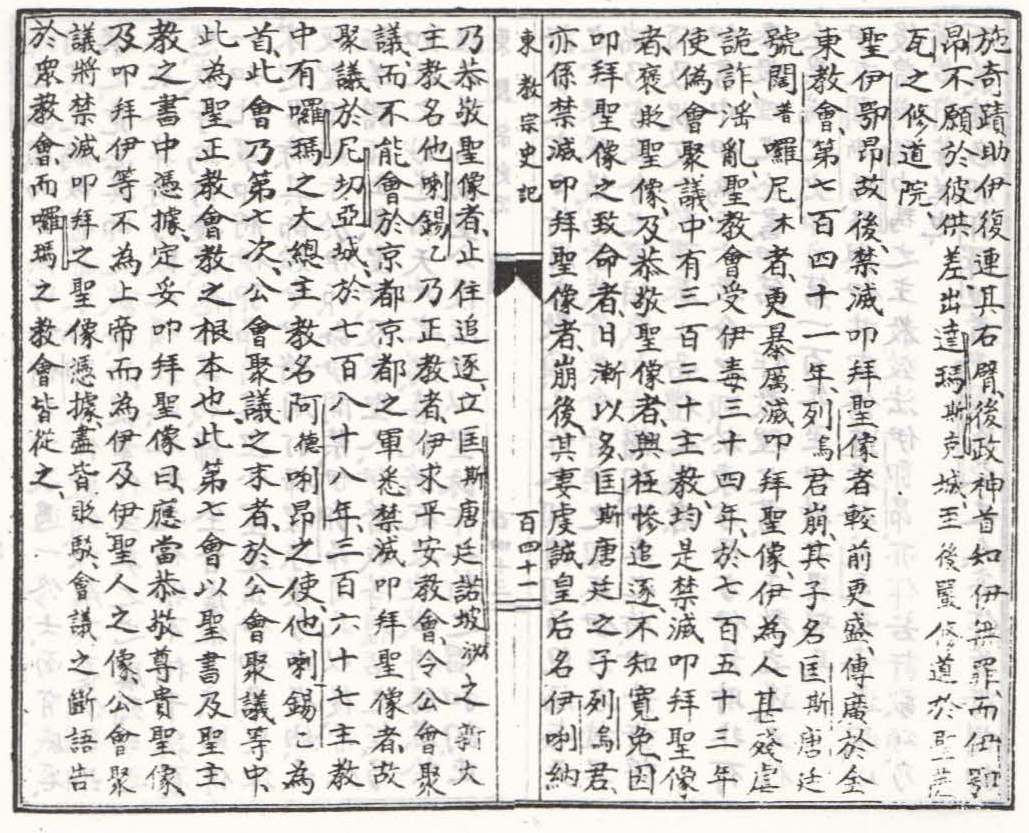 施奇蹟助伊復連其右臂後政神首知伊無罪而伊鄂
昂不願於彼供差出達瑪斯克城至後閣修道於聖薩
瓦之修道院
聖伊鄂昂故後禁滅叩拜聖像者較前更盛傳廣於全
東教會第七百四十一年列烏君崩其子名匡斯唐廷
號闊普囉尼木者更暴厲滅叩拜聖像伊為人甚殘虐
詭詐淫亂聖教會受伊毒三十四年於七百五十三年
使偽會聚議中有三百三十主教均是禁滅叩拜聖像
者褒貶聖像及恭敬聖像者與極慘追逐不知寬免因
叩拜聖像之致命者日漸以多匡斯唐廷之子列烏君
亦係禁滅叩拜聖像者崩後其妻虔誠皇后名伊唎納
東教宗史記
百四十一
乃恭敬聖像者止住追逐立匡斯唐廷諾坡泐之新大
主教名他喇錫乙乃正教者伊求平安教會令公會聚
議而不能會於京都京都之軍悉禁滅叩拜聖像者故
聚議於尼切亞城於七百八十八年三百六十七主教
中有囉瑪之大總主教名阿德唎昂之使他喇錫乙為
首此會乃第七次公會聚議之末者於公會聚議等中
此為聖正教會教之根本也此第七會以聖書及聖主
教之書中憑據定妥叩拜聖像曰應當恭敬尊貴聖像
及叩拜伊等不為上帝而為伊及伊聖人之像公會聚
議將禁滅叩拜之聖像憑據盡皆敗駁會議之斷語告
於眾教會而囉瑪之教會皆從之